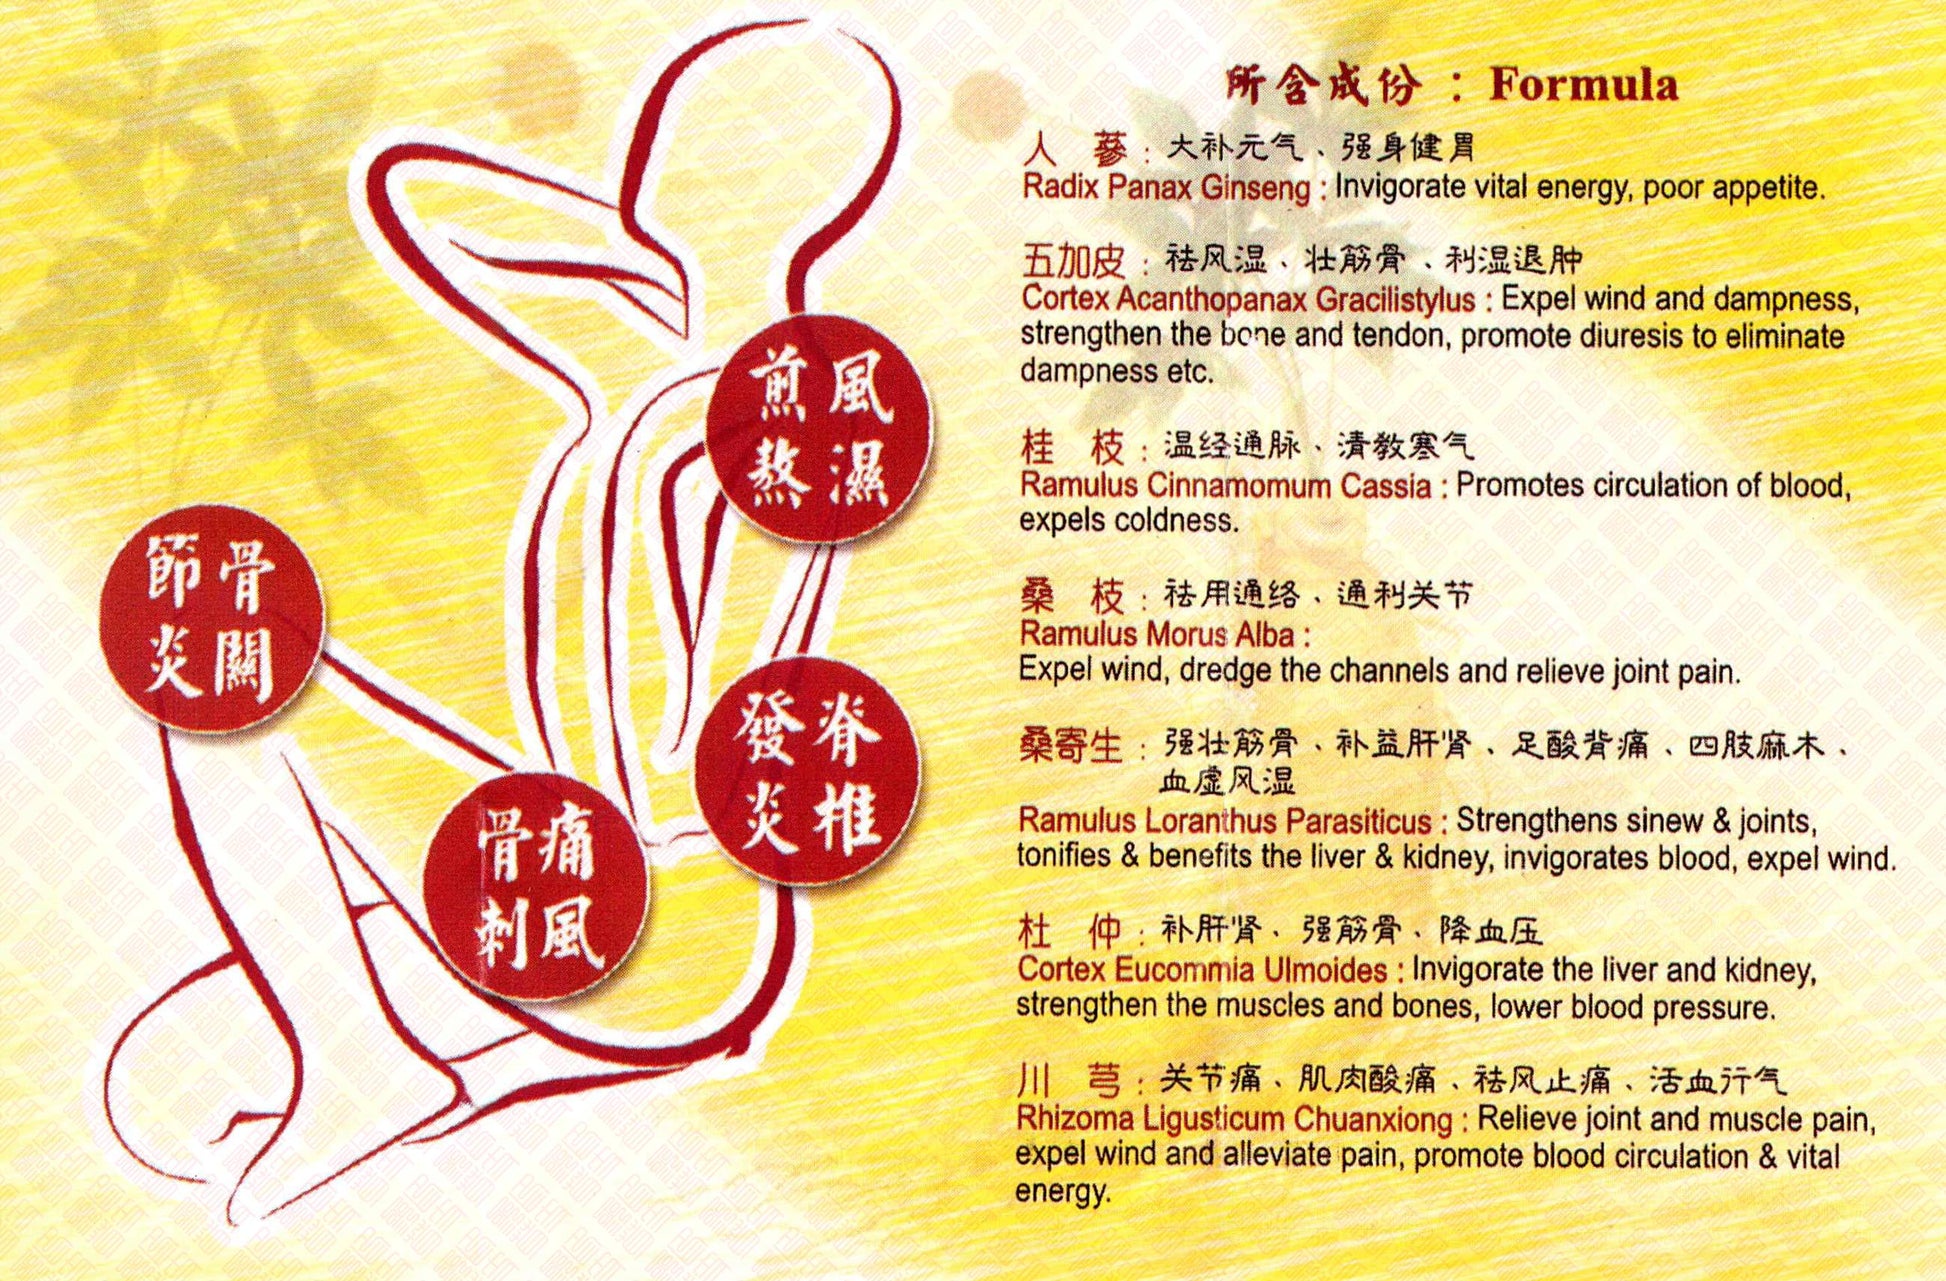 所含成份：Formula
人 蔘：大补元气、强身健胃
Radix Panax Ginseng : Invigorate vital energy, poor appetite.
五加皮：祛风湿、壮筋骨、利湿退肿
Cortex Acanthopanax Gracilistylus : Expel wind and dampness,
strengthen the bone and tendon, promote diuresis to eliminate
dampness etc.
桂 枝：温经通脉、清教寒气
Ramulus Cinnamomum Cassia : Promotes circulation of blood,
expels coldness.
桑 枝：祛用通络、通利关节
Ramulus Morus Alba :
Expel wind, dredge the channels and relieve joint pain.
桑寄生：强壮筋骨、补益肝肾、足酸背痛、四肢麻木、
血虚风湿
Ramulus Loranthus Parasiticus : Strengthens sinew & joints,
tonifies & benefits the liver & kidney, invigorates blood, expel wind.
杜 仲：补肝肾、强筋骨、降血压
Cortex Eucommia Ulmoides : Invigorate the liver and kidney,
strengthen the muscles and bones, lower blood pressure.
川 芎：关节痛、肌肉酸痛、祛风止痛、活血行气
Rhizoma Ligusticum Chuanxiong : Relieve joint and muscle pain,
expel wind and alleviate pain, promote blood circulation & vital
energy.
風濕
煎熬
骨關
節炎
脊椎
發炎
痛風
骨刺